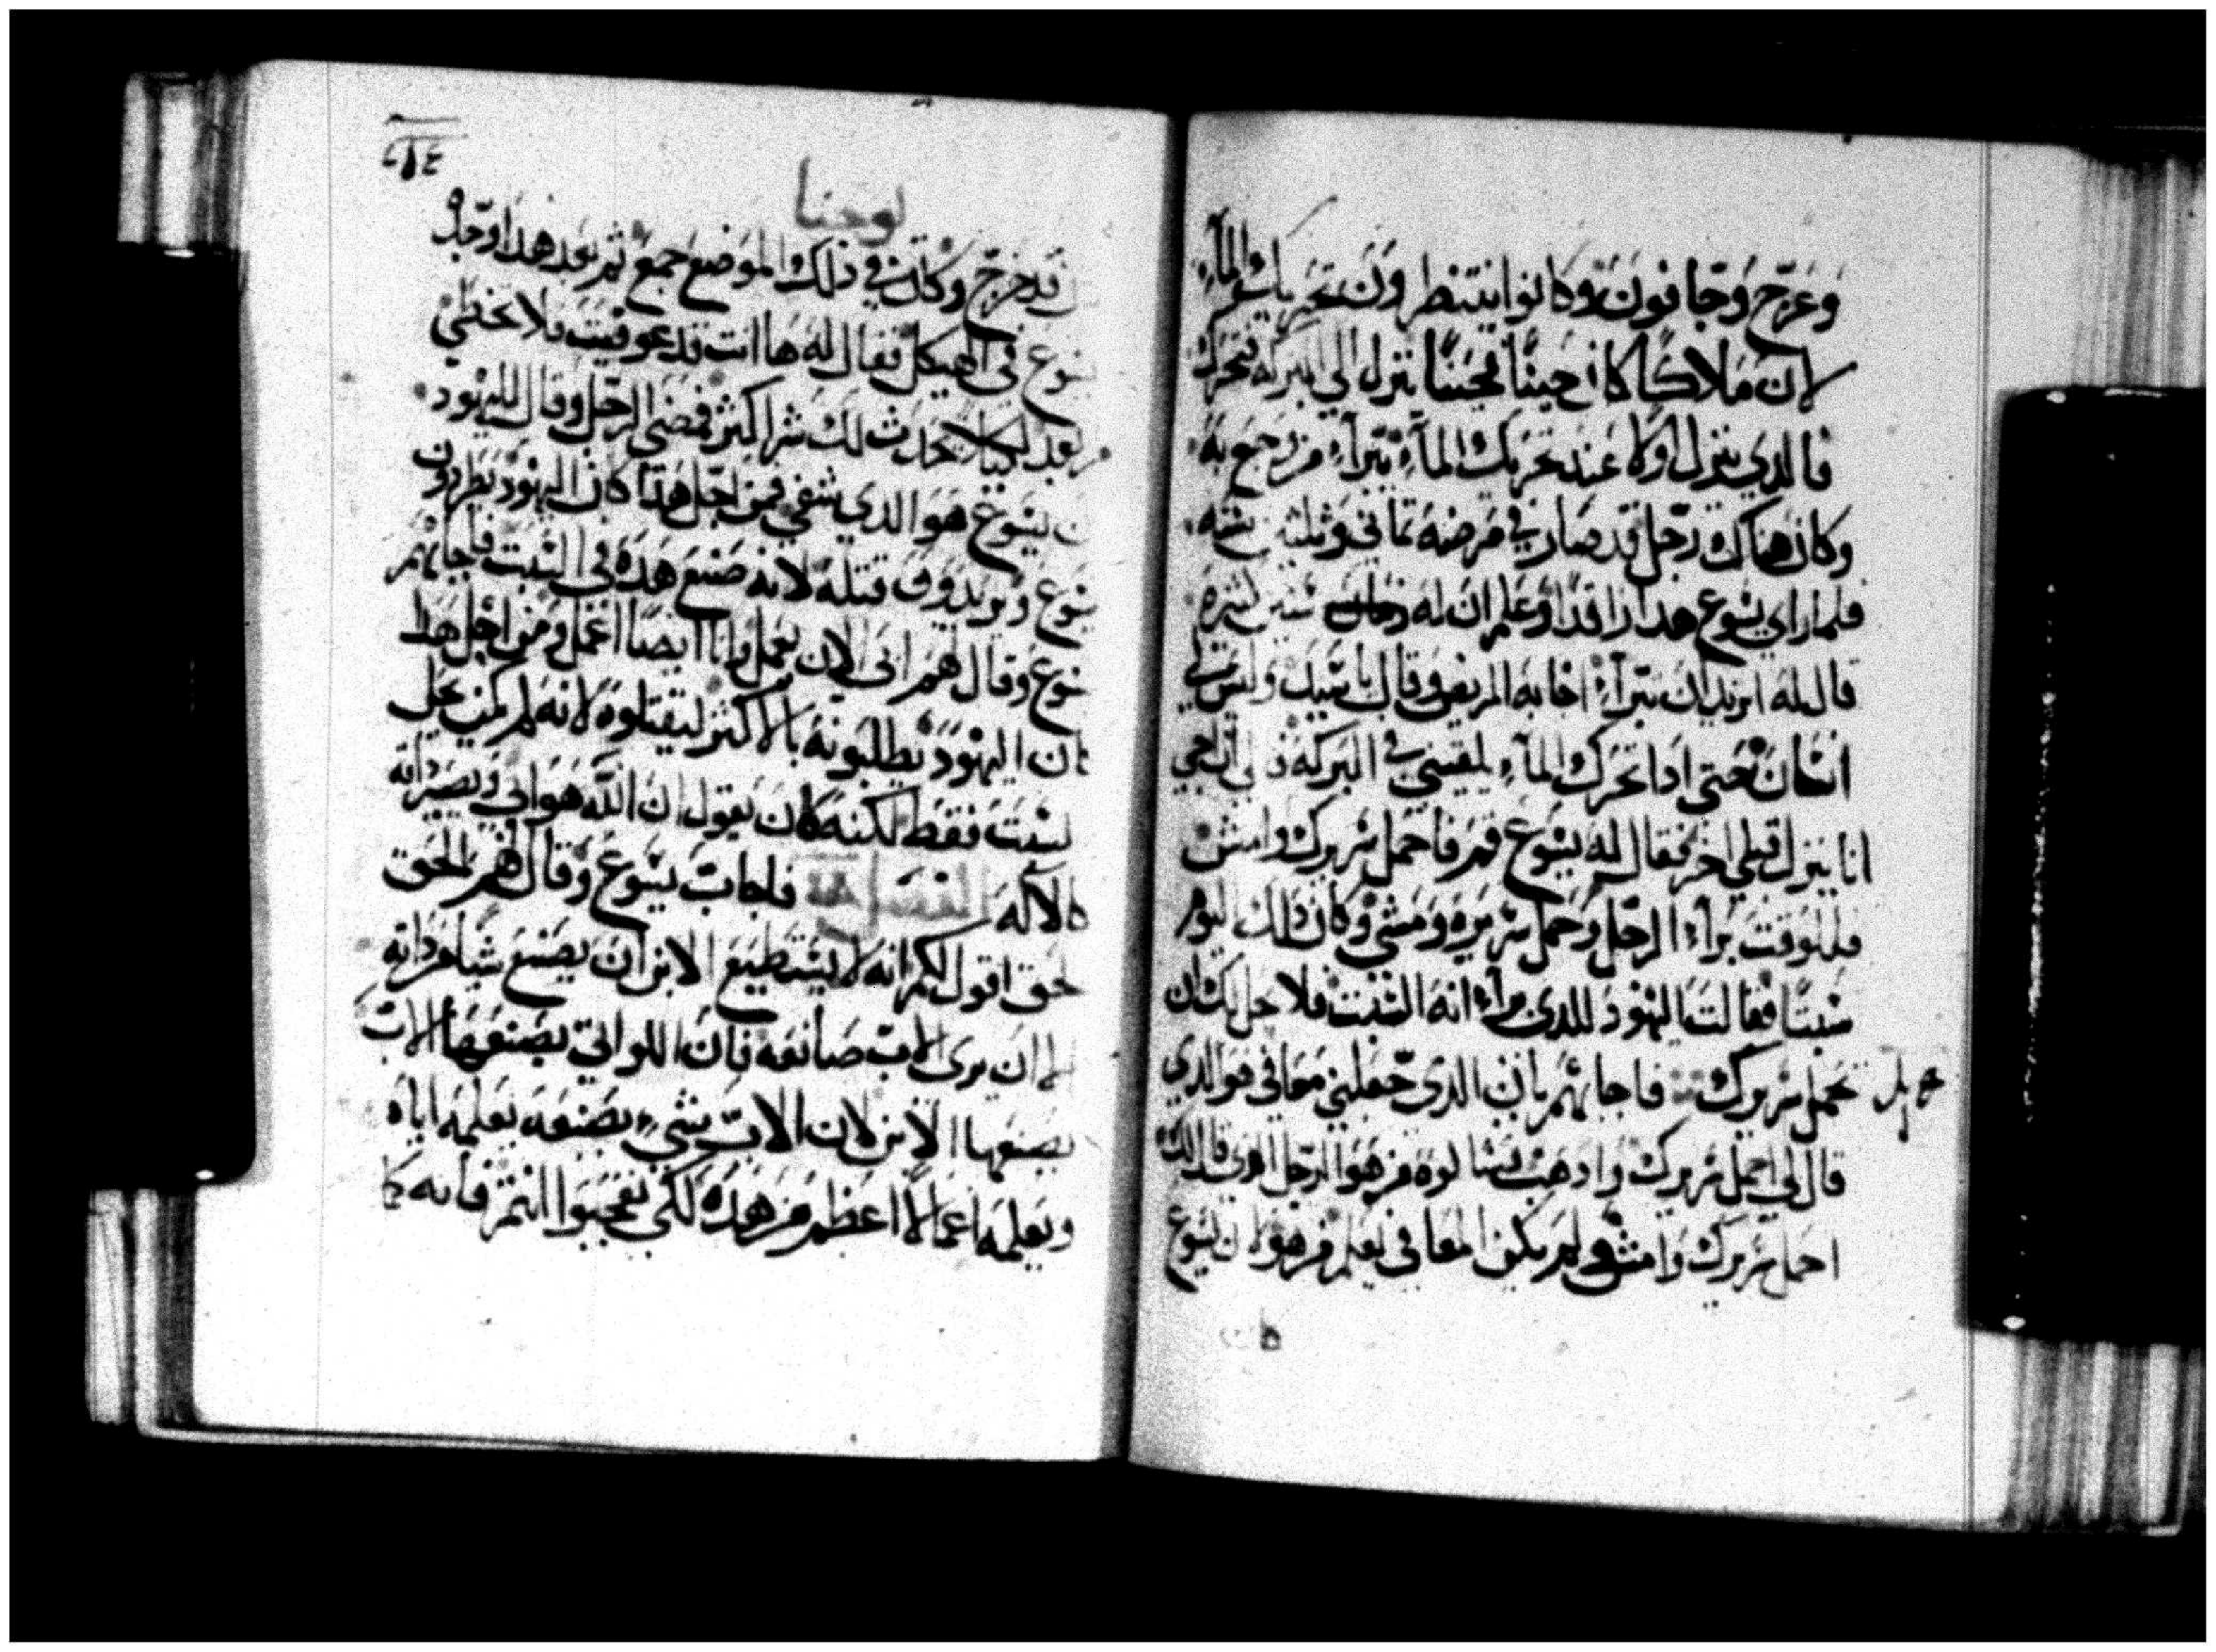 وعرج وجافون وكانوا ينتظرون تحريك المآء
لان ملاكًا كان حينًا فحينًا ينزل الي البركه فيحرك
فالدي ينزل اولا عند تحريك المآء يبرآء من وجع به
وكان هناك رجل قد صار في مرضه تماني وثلثين سنه
فلما راي يسوع هدا راقدًا وعلم ان له سنين كثيره
قال له اتريد ان تبرآء اجابه المريض وقال يا سيد وليس لي
انسان حتي ادا تحرك المآء يلقيني في البركه الي ان اجي
انا ينزل قبلي اخر فقال له يسوع قم فاحمل سريرك وامش
فللوقت برآء الرجل وحمل سريره ومشي وكان دلك اليوم
سبتًا فقالت اليهود للدي برآء انه السبت فلا يحل لك ان
تحمل سريرك فاجابهم بان الدي جعلني معافي هو الدي
قال لي احمل سريرك وادهب فسالوه من هو الرجل الدي قال لك
احمل سريرك وامش ولم يكن المعافي يعلم من هو لان يسوع
كان
يوحنا
٢١٤
قد خرج وكان في دلك الموضع جمع ثم بعد هدا وجده
يسوع في الهيكل فقال له ها انت قد عوفيت فلا تخطي
من بعد لكيلا يحدث لك شرا كثر فمضي الرجل وقال لليهود
ان يسوع هو الدي شفي فمن اجل هدا كان اليهود يطردون
يسوع ويريدون قتله لانه صنع هده في السبت فاجابهم
يسوع وقال لهم ابي الان يعمل وانا ايضا اعمل ومن اجل هدا
كان اليهود يطلبونه بالاكثر ليقتلوه لانه لم يكن يحل
السبت فقط لكنه كان يقول ان الله هو ابي ويصير داته
كالاله فاجاب يسوع وقال لهم الحق
الحق اقول لكم انه لا يستطيع الابن ان يصنع شيا من داته
الا ان يرى الاب صانعه فان اللواتي يصنعها الاب
يصنعها الابن لان الاب شيء يصنعه يعلمه اياه
ويعلمه اعمالا اعظم من هده لكي تعجبوا انتم فانه كما